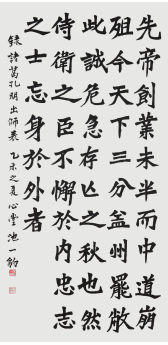 先帝創業未半而中道崩
殂今天下三分益州罷敝
此誠危急存亡之秋也然
侍衛之臣不懈於內忠志
之士忘身於外者
錄諸葛孔明出師表 乙未之夏 心堂 池